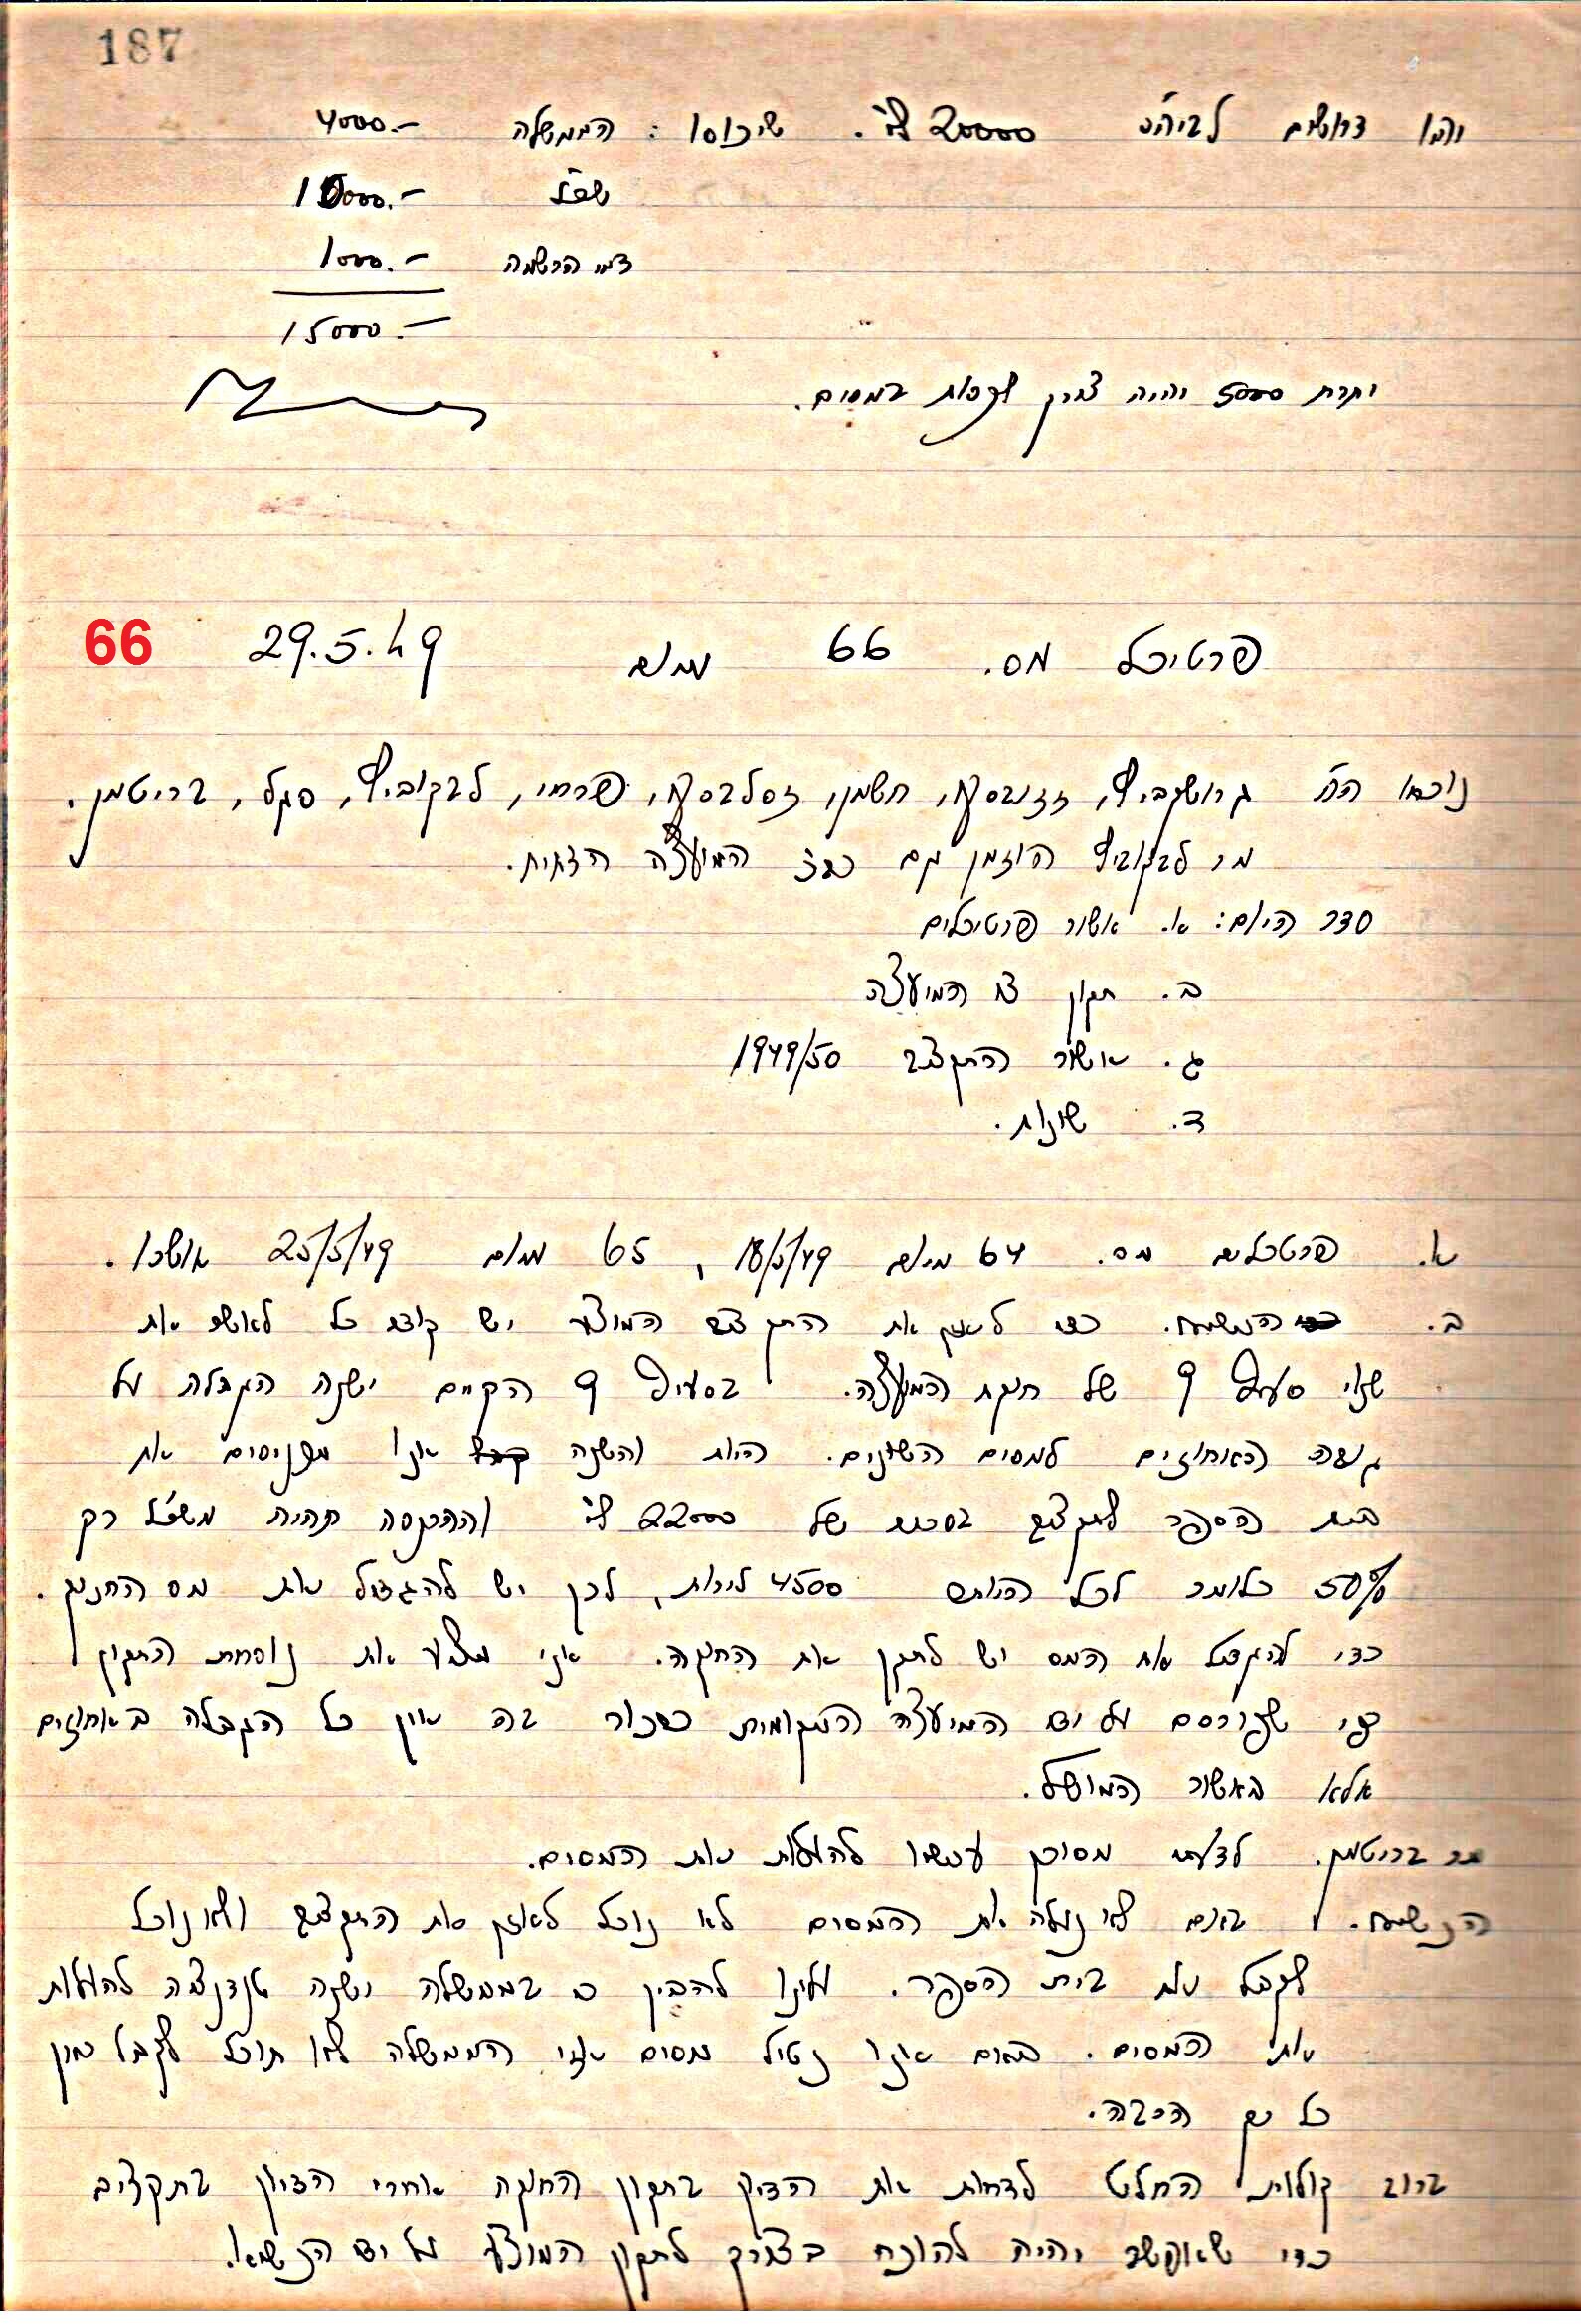 187
יהיו דרושים לביה"ס 20000 ל"י. שיכוסו: הממשלה 4000.-
שכ"ל 10000.-
דמי הרשמה 1000.-
15000.-
יתרת 5000 יהיה צורך לכסות במסים.
66
פרטיכל מס. 66 מיום 29.5.49
נוכחו ה"ה גרושקביץ, חשמן, זסלבסקי, פרחי, לבקוביץ, סגל, בריטמן.
מר לבקוביץ הוזמן גם כנציג המועצה הדתית.
סדר היום: א. אשור פרטיכלים
ב. תקון צו המועצה
ג. אשור התקציב 1949/50
ד. שונות.
א. פרטיכלים מס. 64 מיום 18/5/49, 65 מיום 25/5/49 אושרו.
ב. הנשיא. כדי לאזן את התקציב המוצע יש קודם כל לאשר את
שנוי סעיף 9 של חוקת המועצה. בסעיף 9 הקיים ישנה הגבלה על
גובה האחוזים למסים השונים. היות והשנה אנו מכניסים את
בית הספר לתקציב בסכום של 22000 ל"י וההכנסה תהיה משכ"ל רק
50% כלומר לכל היותר 4500 לירות, לכן יש להגדיל את מס החנוך.
כדי להגדיל את המס יש לתקן את החוקה. אני מציע את נוסחת התקון
כפי שפורסם על ידי המועצה המקומית בה אין כל הגבלה באחוזים
אלא באשור המושל.
מר בריטמן. לדעתי מסוכן עכשו להעלות את המסים.
הנשיא. באם לא נעלה את המסים לא נוכל לאזן את התקציב ולא נוכל
לקבל את בית הספר. עלינו להבין כי בממשלה ישנה טנדנציה להעלות
את המסים. באם איננו נטיל מסים אזי הממשלה לא תוכל לקבל
כל גם הרבה.
ברוב קולות הוחלט לדחות את הדיון בתקון החוקה אחרי הדיון בתקציב
כדי שאפשר יהיה להוכח בצורך לתקון המוצע על ידי הנשיא.